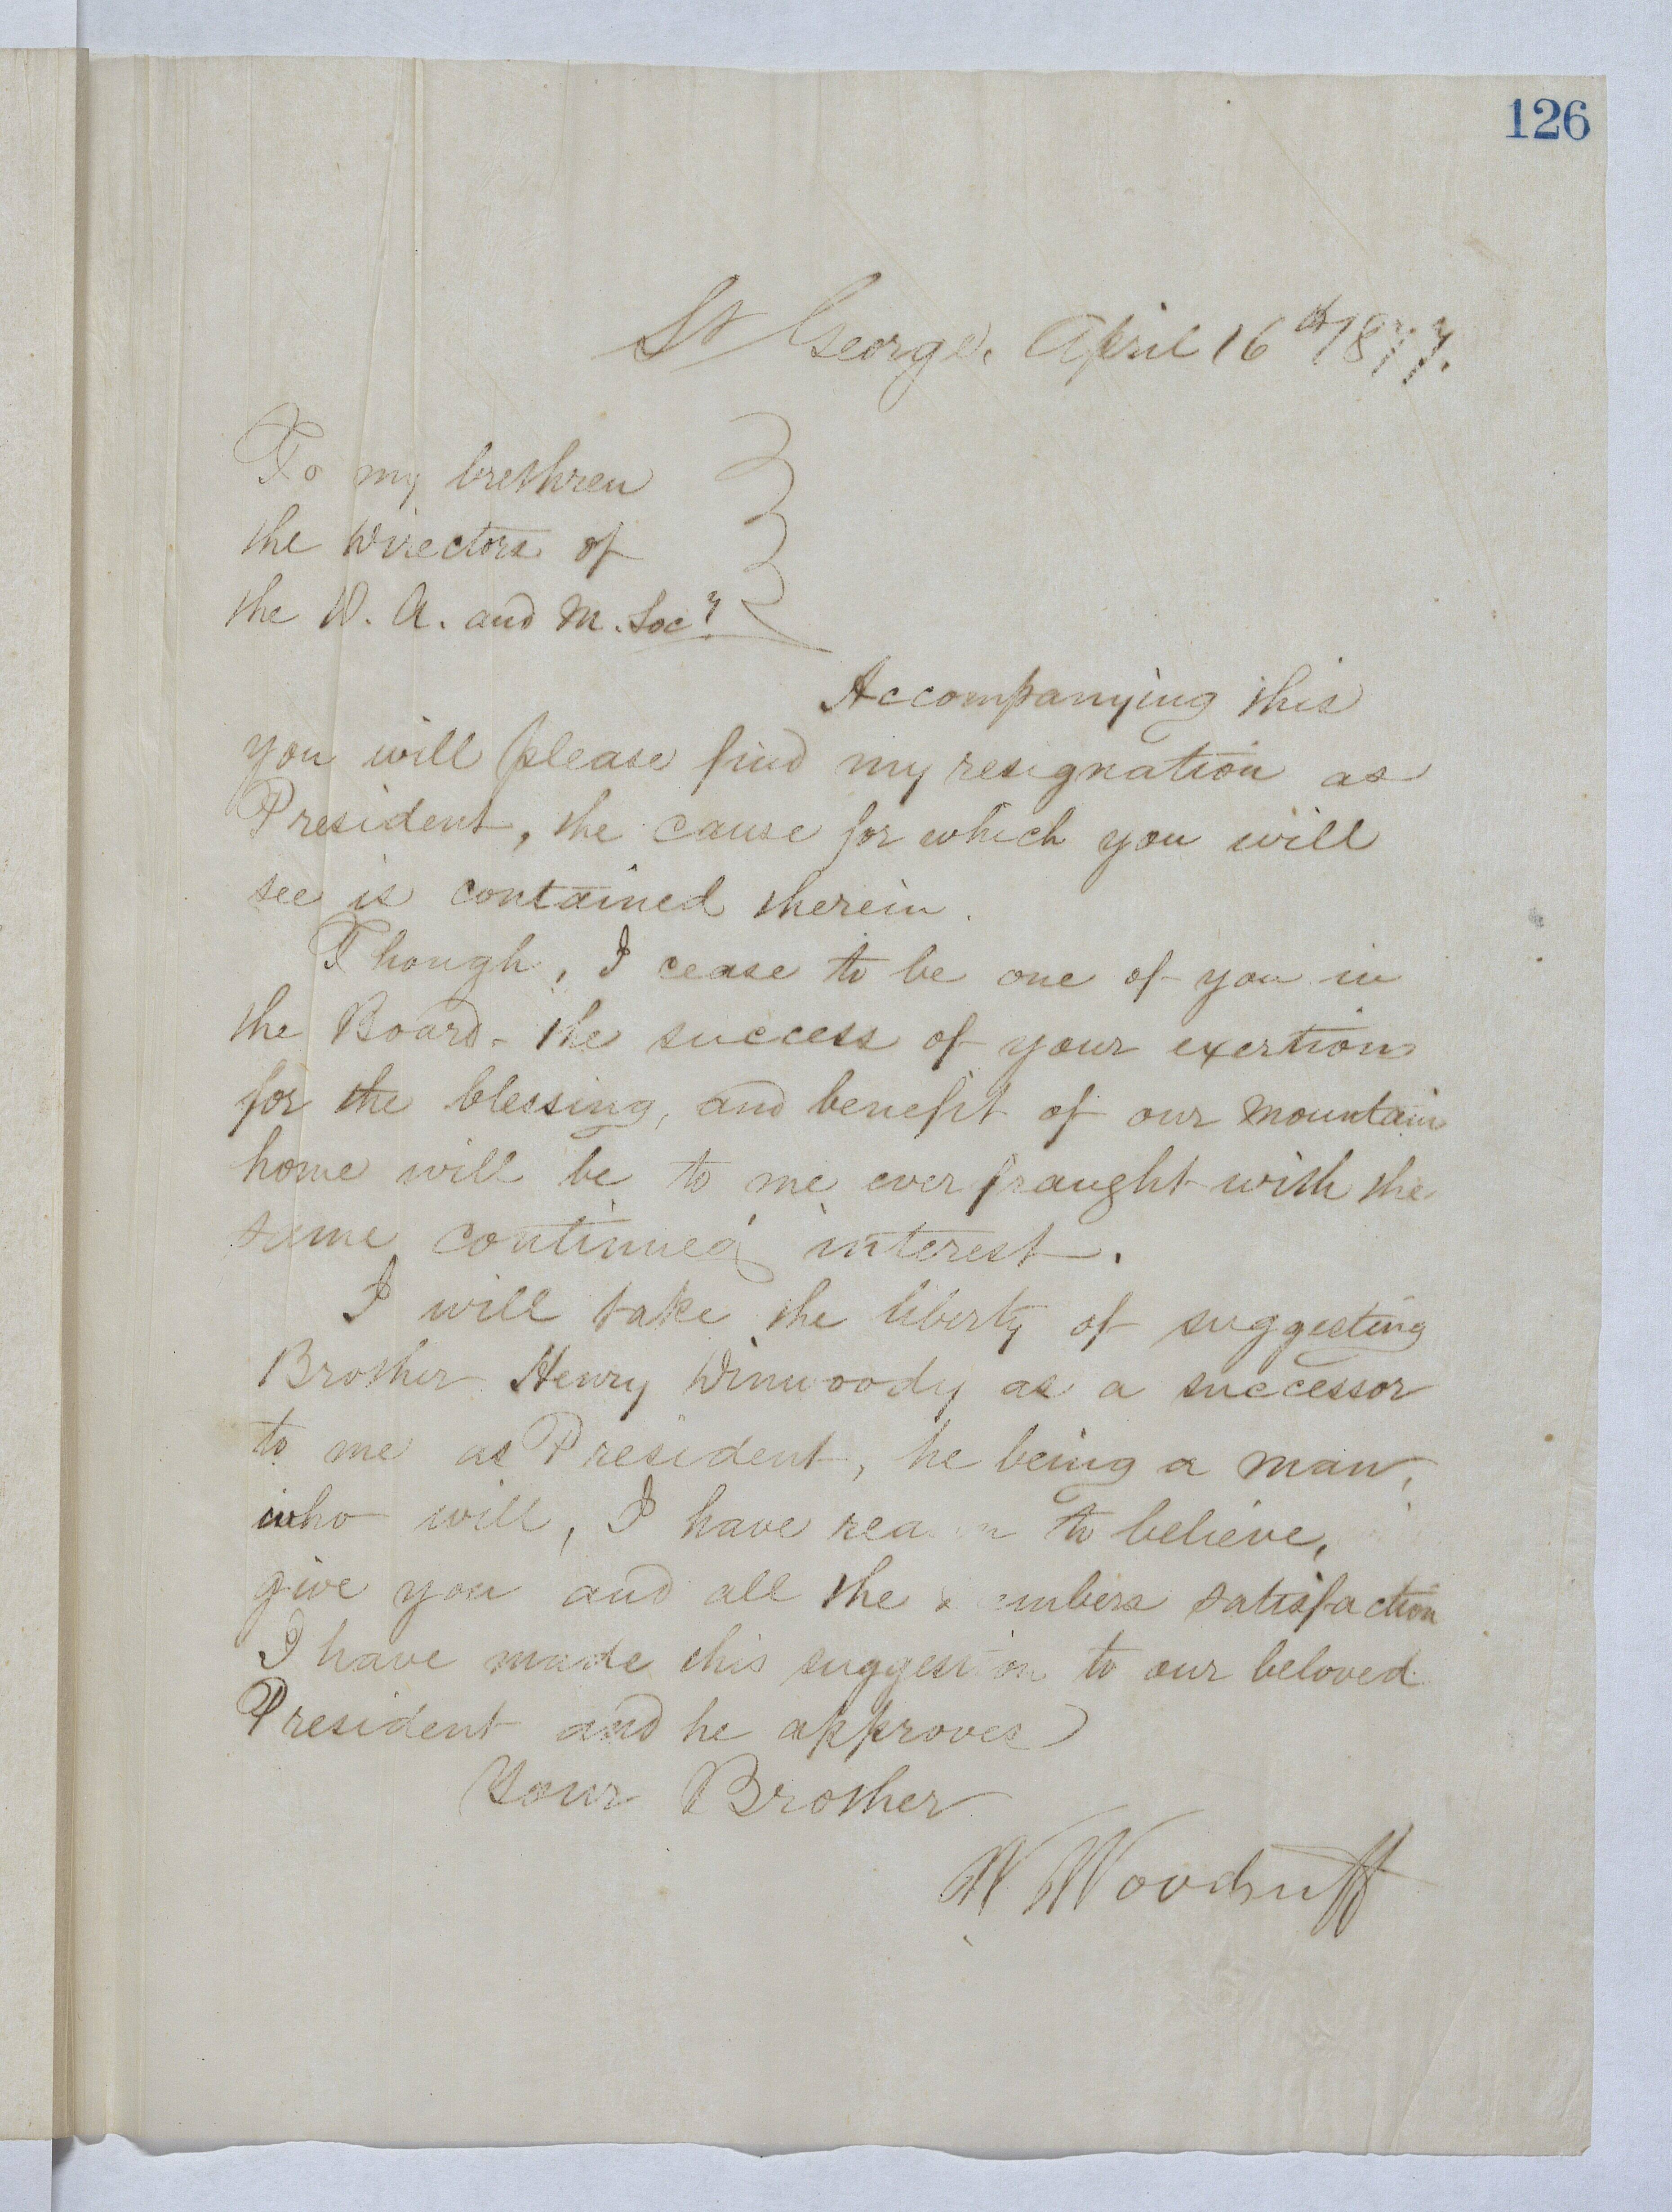 126
St George. April 16th 1877.
To my brethren
the Directors of
the D. A. and M. Socy.
Accompanying this
you will please find my resignation as
President, the cause for which you will
see is contained therein.
Though, I cease to be one of you in
the Board - the success of your exertions
for the blessing, and benefit of our mountain
home will be to me ever fraught with the
same continued interest.
I will take the liberty of suggesting
Brother Henry Dinwoody as a successor
to me as President, he being a man,
who will, I have rea n to believe,
give you and all the embers satisfaction
I have made this suggestion to our beloved
President and he approves
Your Brother
W Woodruff